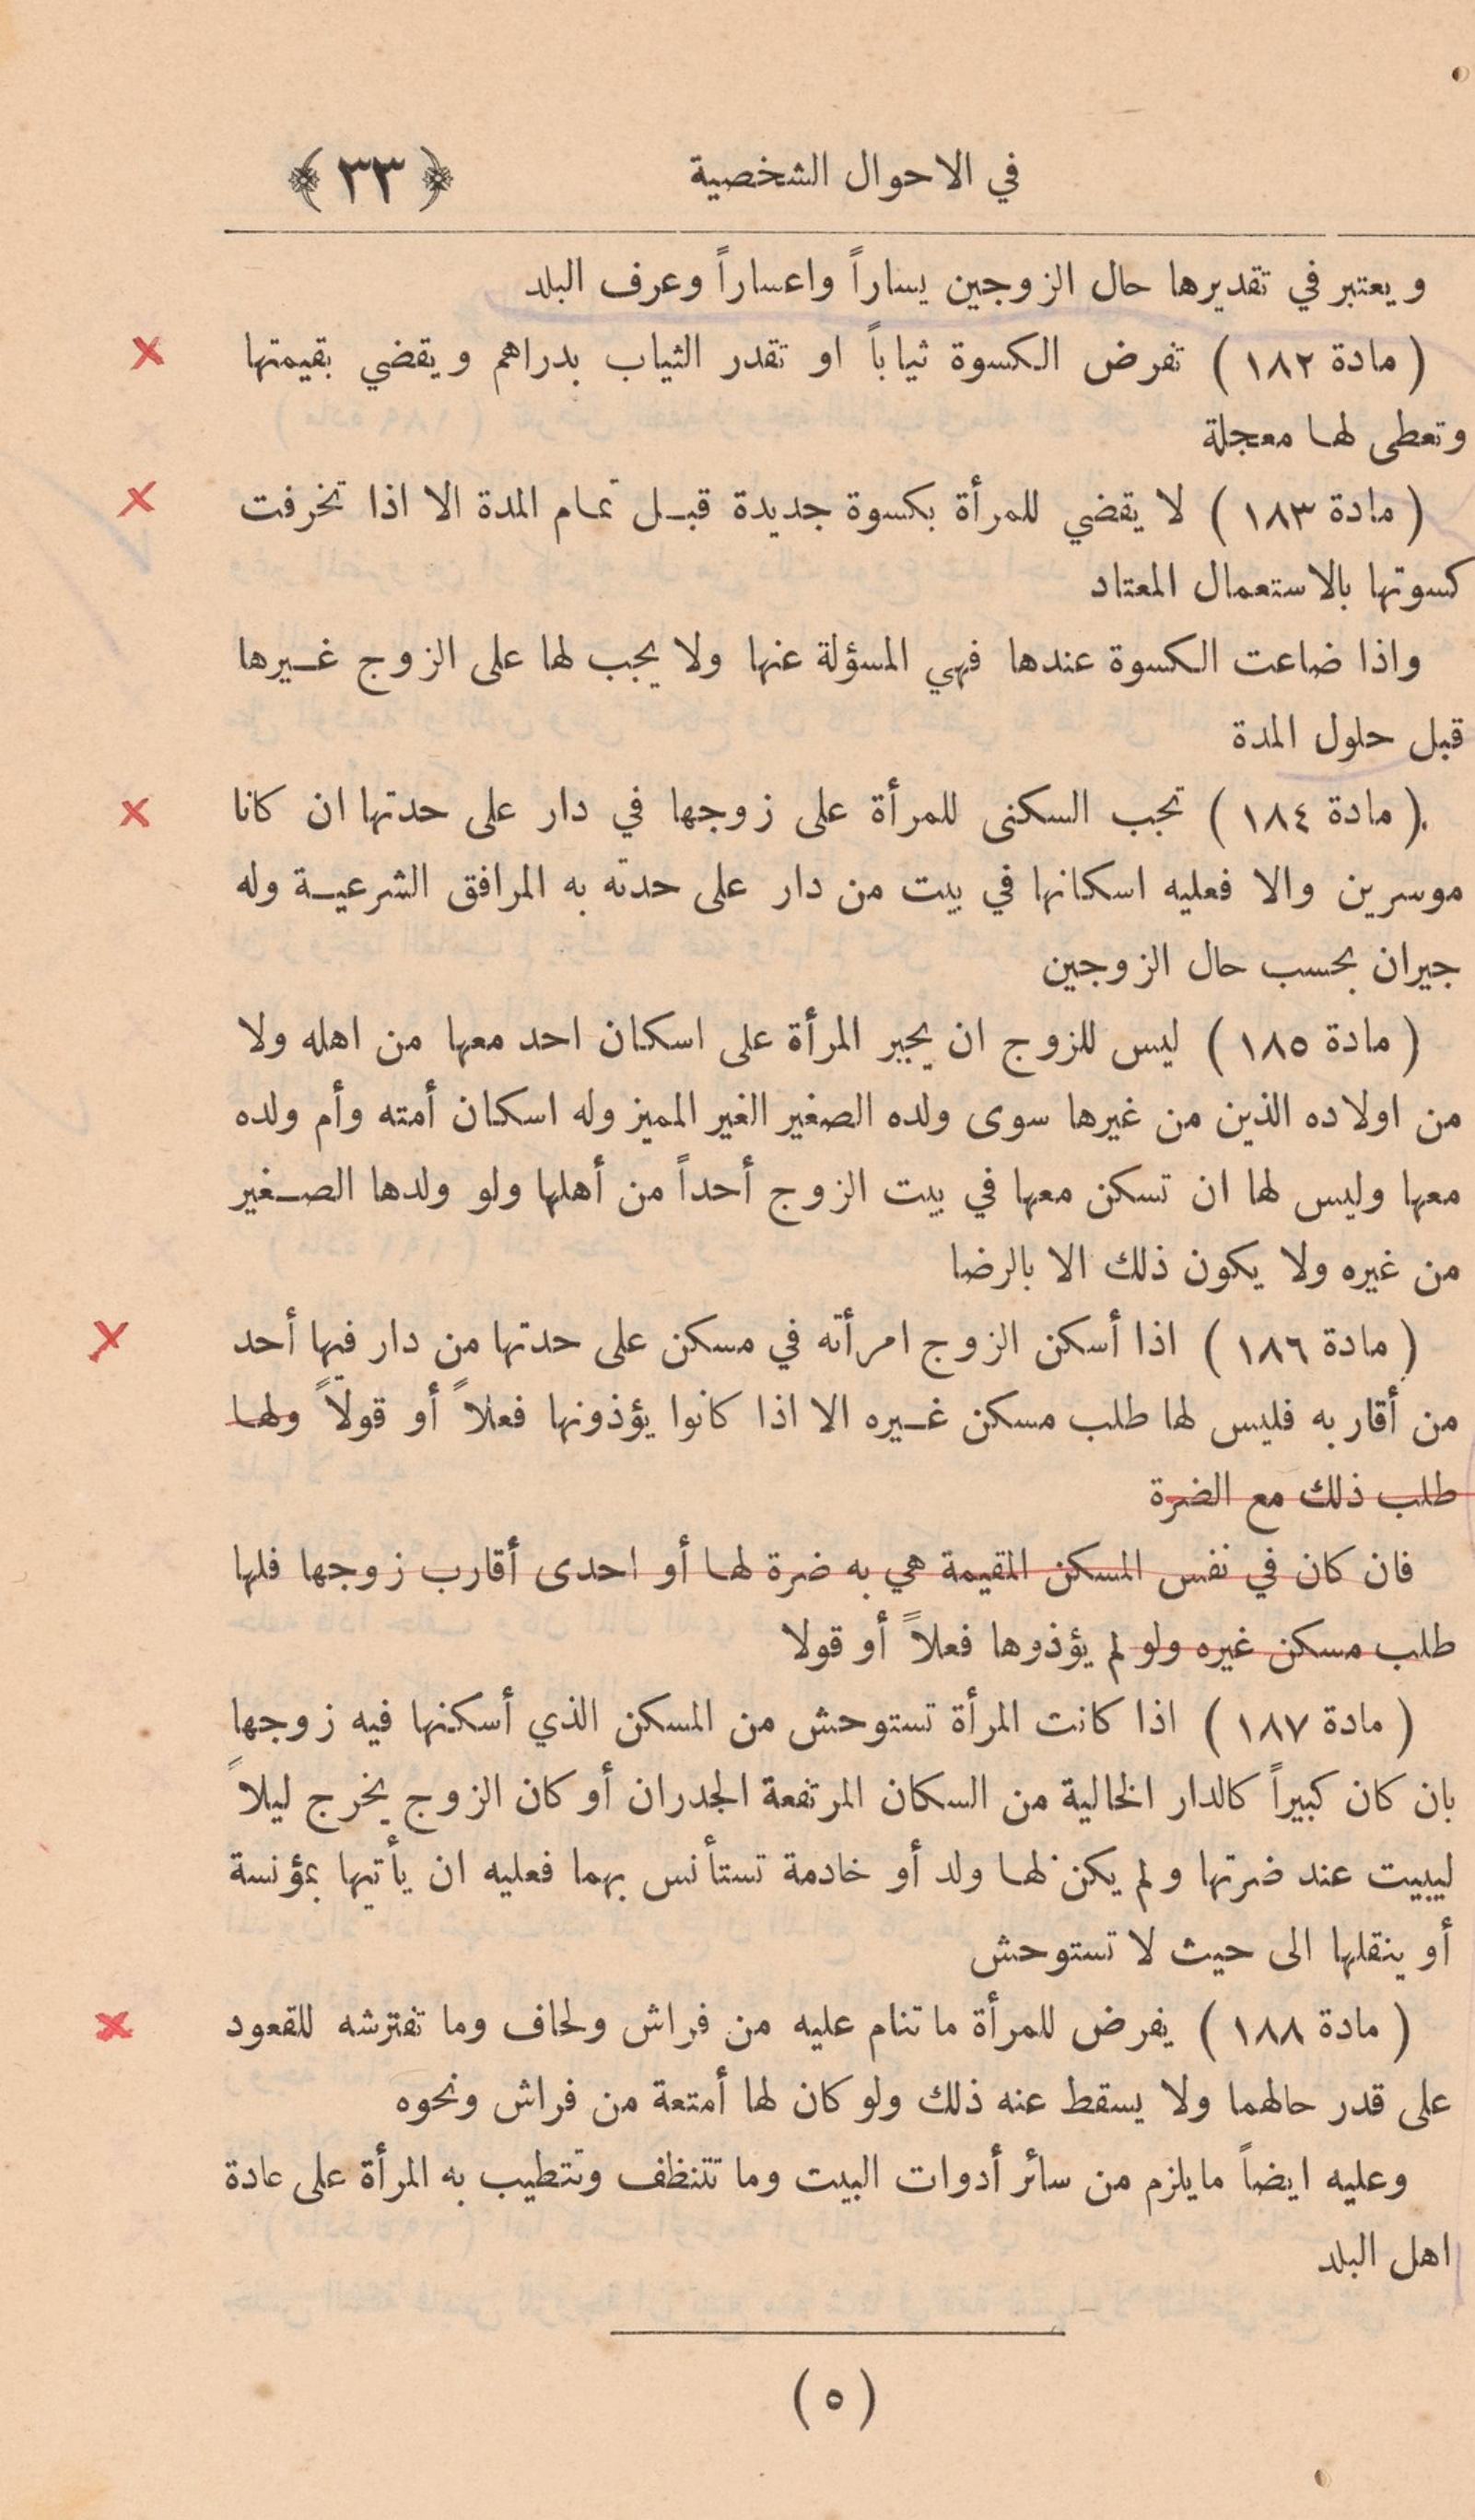 في الاحوال الشخصية ﴿ ٣٣ ﴾
ويعتبر في تقديرها حال الزوجين يساراً واعساراً وعرف البلد
( مادة ١٨٢ ) تفرض الكسوة ثياباً او تقدر الثياب بدراهم ويقضي بقيمتها
وتعطى لها معجلة
( مادة ١٨٣ ) لا يقضي للمرأة بكسوة جديدة قبل تمام المدة الا اذا تخرفت
كسوتها بالاستعمال المعتاد
واذا ضاعت الكسوة عندها فهي المسؤلة عنها ولا يجب لها على الزوج غيرها
قبل حلول المدة
( مادة ١٨٤ ) تجب السكنى للمرأة على زوجها في دار على حدتها ان كانا
موسرين والا فعليه اسكانها في بيت من دار على حدته به المرافق الشرعية وله
جيران بحسب حال الزوجين
( مادة ١٨٥ ) ليس للزوج ان يجبر المرأة على اسكان احد معها من اهله ولا
من اولاده الذين من غيرها سوى ولده الصغير الغير المميز وله اسكان أمته وأم ولده
معها وليس لها ان تسكن معها في بيت الزوج أحداً من أهلها ولو ولدها الصغير
من غيره ولا يكون ذلك الا بالرضا
( مادة ١٨٦ ) اذا أسكن الزوج امرأته في مسكن على حدتها من دار فيها أحد
من أقاربه فليس لها طلب مسكن غيره الا اذا كانوا يؤذونها فعلاً أو قولاً ولها
طلب ذلك مع الضرة
فان كان في نفس المسكن المقيمة هي به ضرة لها أو احدى أقارب زوجها فلها
طلب مسكن غيره ولو لم يؤذوها فعلاً أو قولا
( مادة ١٨٧ ) اذا كانت المرأة تستوحش من المسكن الذي أسكنها فيه زوجها
بان كان كبيراً كالدار الخالية من السكان المرتفعة الجدران أو كان الزوج يخرج ليلاً
ليبيت عند ضرتها ولم يكن لها ولد أو خادمة تستأنس بهما فعليه ان يأتيها بمؤنسة
أو ينقلها الى حيث لا تستوحش
( مادة ١٨٨ ) يفرض للمرأة ما تنام عليه من فراش ولحاف وما تفترشه للقعود
على قدر حالهما ولا يسقط عنه ذلك ولو كان لها أمتعة من فراش ونحوه
وعليه ايضاً ما يلزم من سائر أدوات البيت وما تتنظف وتتطيب به المرأة على عادة
اهل البلد
( ٥ )